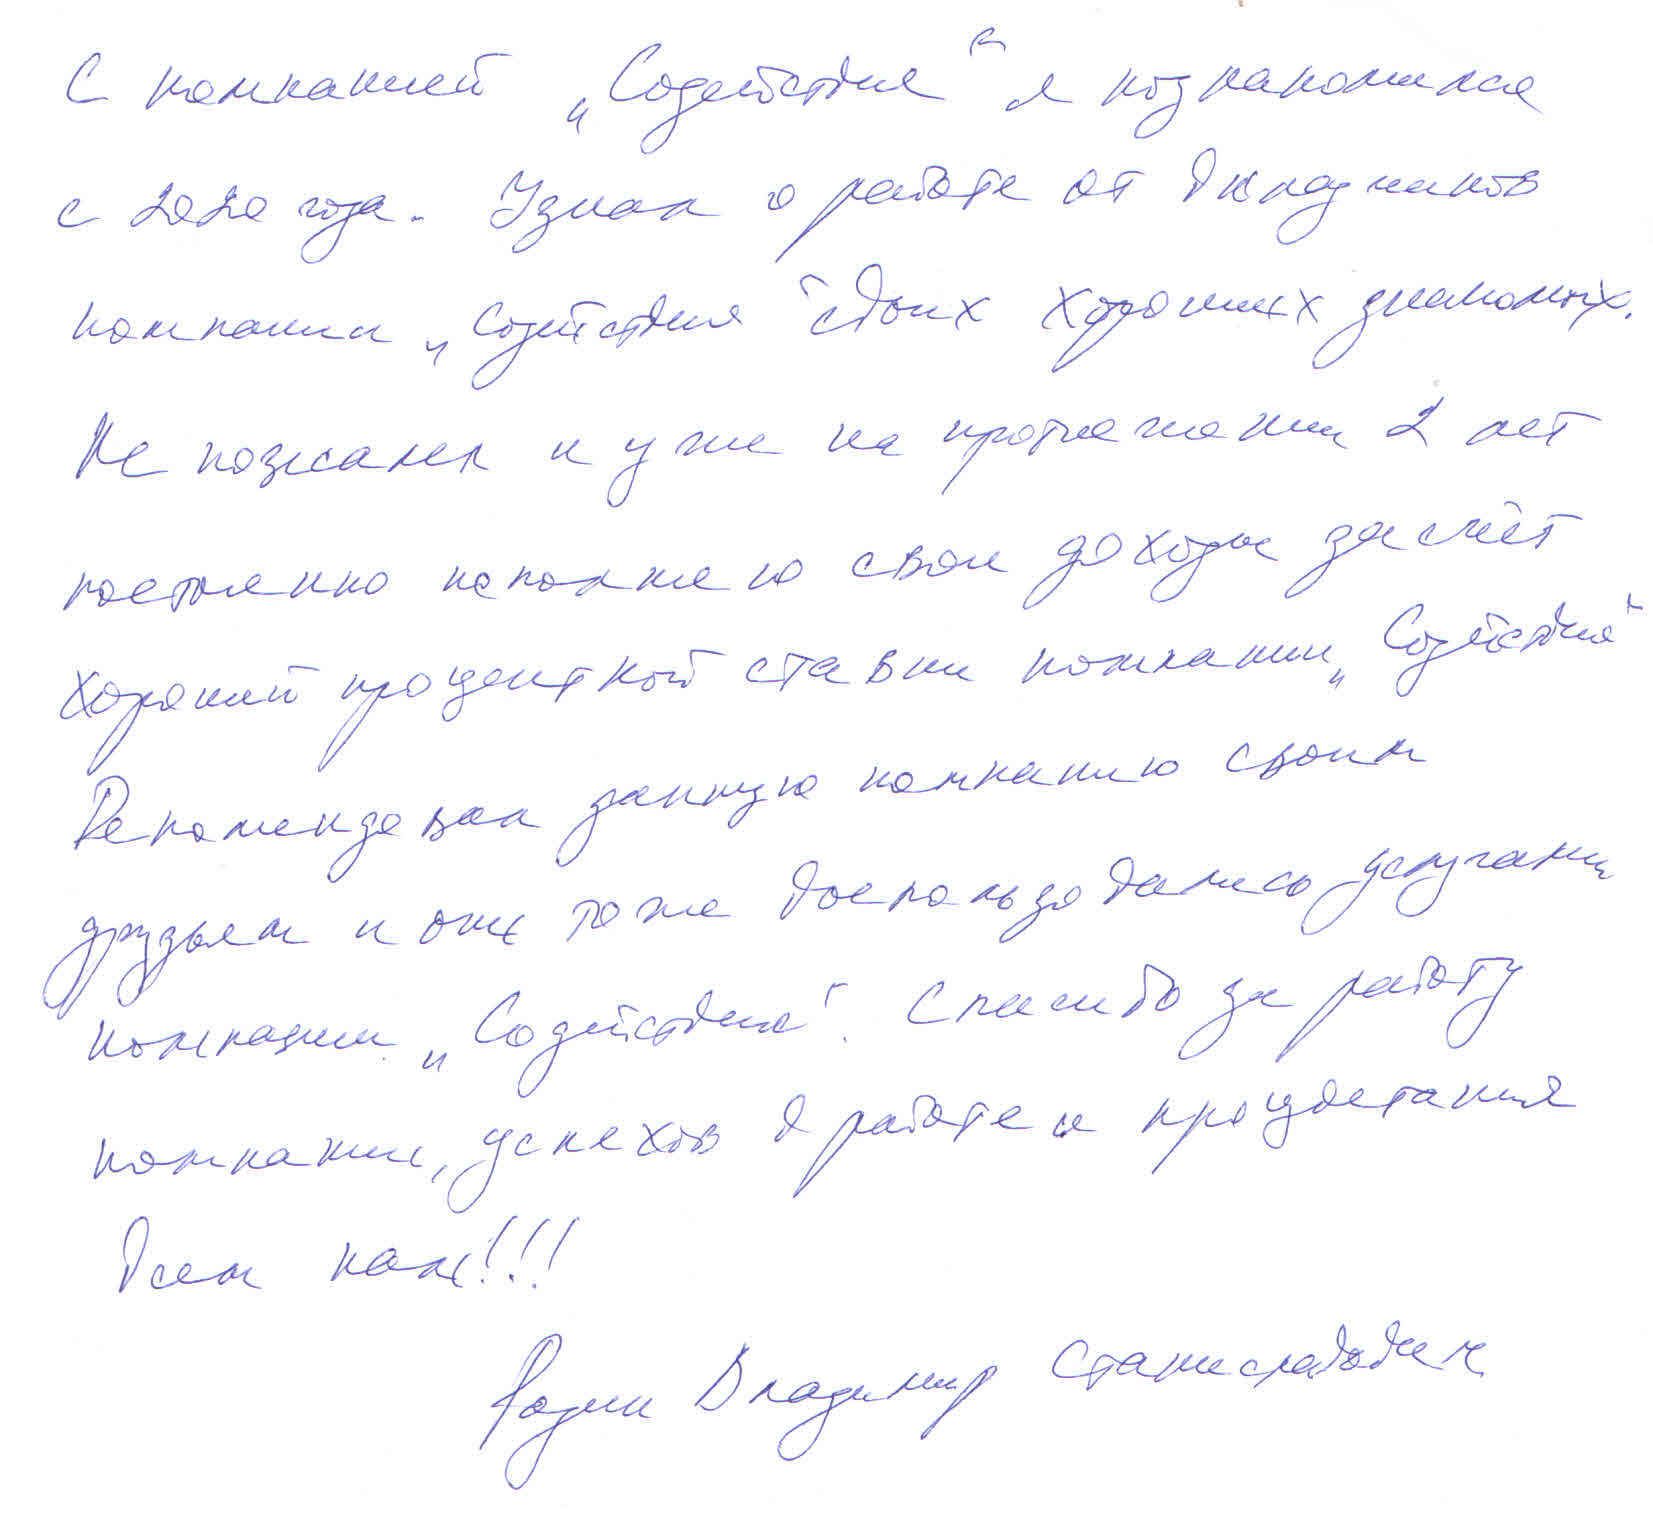 С компанией „Содействия“ я познакомился
с 2020 года. Узнал о работе от вкладчиков
компании „Содействия“ своих хороших знакомых.
Не пожалел и уже на протяжении 2 лет
постоянно пополняю свои доходы за счёт
хорошей процентной ставки компании „Содействия“
Рекомендовал данную компанию своим
друзьям и они тоже воспользовались услугами
компании „Содействия“. Спасибо за работу
компании, успехов в работе и процветания
всем нам!!!
Родин Владимир Станиславович